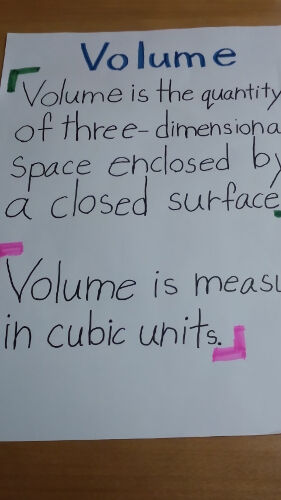 Volume
Volume is the quantity
of three-dimensiona
space enclosed by
a closed surface
Volume is meas
in cubic units.